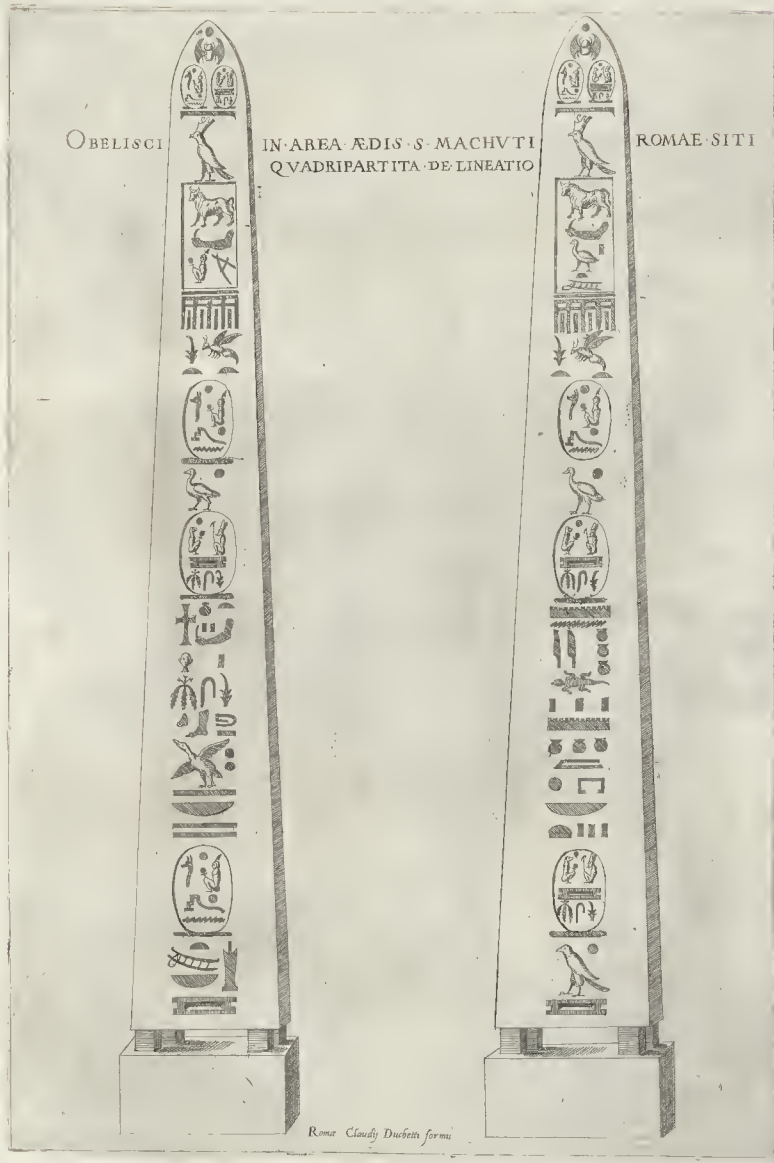 OBELISCI IN·AREA·ÆDIS·S·MACHVTI ROMAE·SITI
QVADRIPARTITA·DE·LINEATIO
Romæ Claudij Duchetti formis